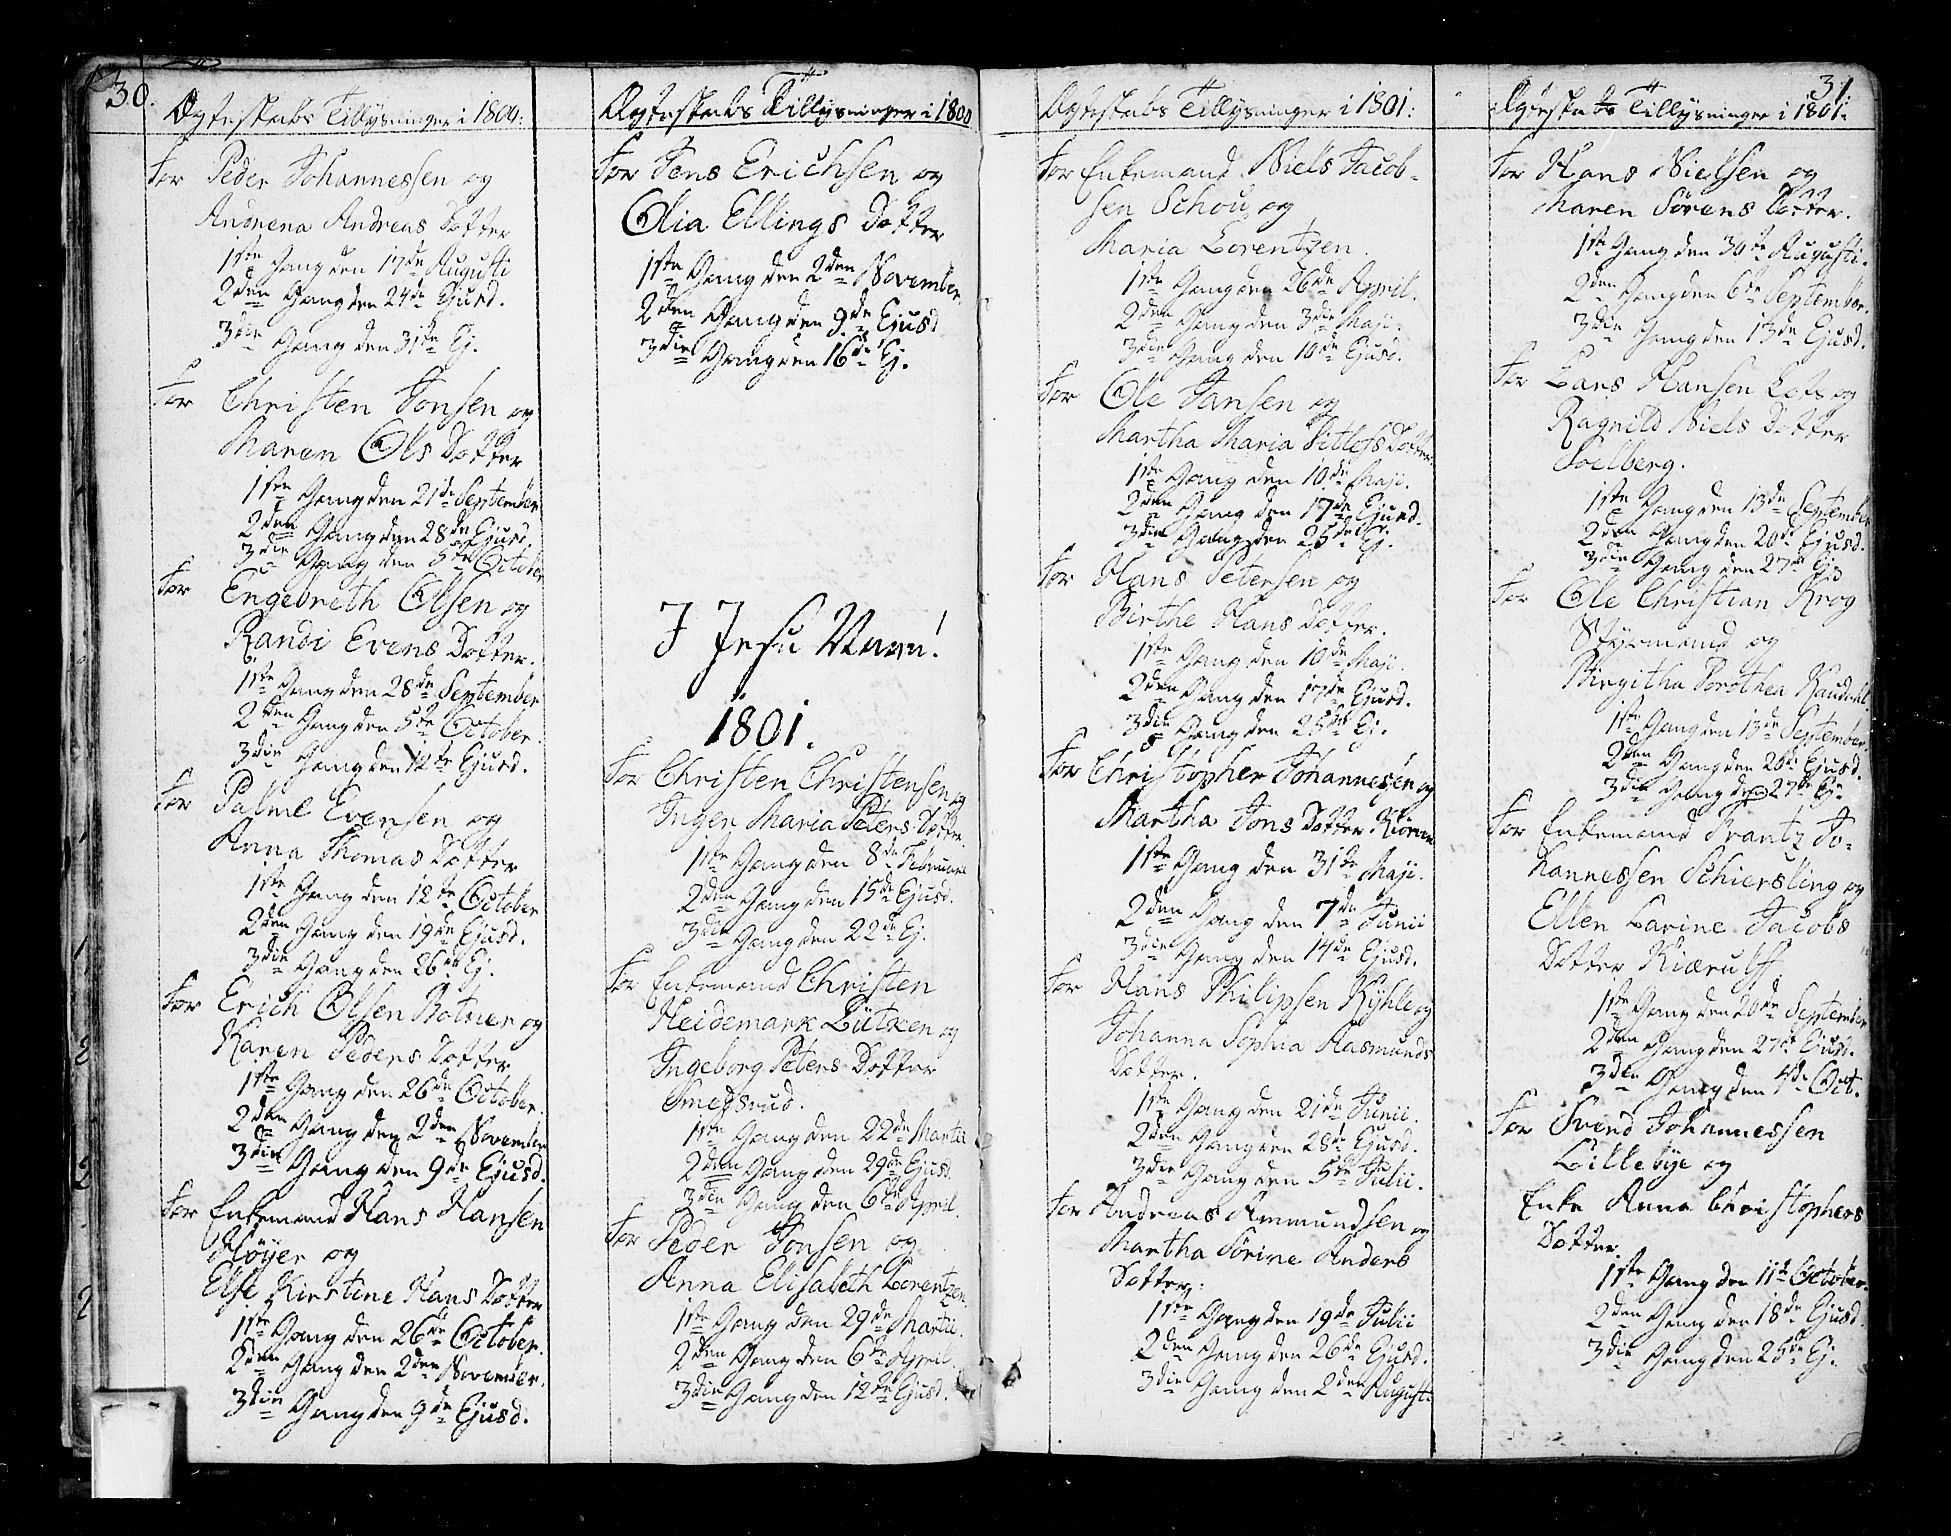 30.
Ægteskabs Tillysninger i 1800:
for Peder Johannessen og
Andrena Andreas Dotter
1ste Gang den 17de Augusti
2den Gang den 24de Ejusd.
3die Gang den 31te Ej.
for Christen Jonsen og
Maren Ols Dotter
1ste Gang den 21de September
2den Gang den 28de Ejusd.
3die Gang den 5te October
for Engebreth Olsen og
Randi Evens Dotter.
1ste Gang den 28de September
2den Gang den 5te October.
3die Gang den 12te Ejusd.
for Palme Evensen og
Anna Thomas Dotter
1ste Gang den 12te October
2den Gang den 19de Ejusd.
3die Gang den 26de Ej.
for Erich Olsen Botner og
Karen Peders Dotter
1ste Gang den 26de October.
2den Gang den 2den November
3die Gang den 9de Ejusd.
for Enkemand Hans Hansen
Höyer og
Else Kirstine Hans Dotter
1ste Gang den 26de October.
2den Gang den 2den November.
3die Gang den 9de Ejusd.
Ægteskabs Tillysninger i 1800
for Jens Erichsen og
Olia Ellings Dotter
1ste Gang den 2den November.
2den Gang den 9de Ejusd
3die Gang den 16de Ej.
I Jesu Navn!
1801.
for Christen Christensen og
Inger Maria Peters Dotter.
1ste Gang den 8de Februarii
2den Gang den 15de Ejusd.
3die Gang den 22de Ej.
for Enkemand Christen
Heidemark Lützen og
Ingeborg Peters Dotter
Smedsrud.
1ste Gang den 22de Martii
2den Gang den 29de Ejusd.
3die Gang den 6te April.
for Peder Jonsen og
Anna Elisabeth Lorentzen.
1ste Gang den 29de Martii.
2den Gang den 6te April.
3die Gang den 12te Ejusd.
Ægteskabs Tillysninger i 1801:
for Enkemand Niels Jacob-
sen Schou og
Maria Lorentzen.
1ste Gang den 26de April.
2den Gang den 3die Maji.
3die Gang den 10de Ejusd.
for Ole Jansen og
Martha Maria Ditlefs Dotter.
1ste Gang den 10de Maji.
2den Gang den 17de Ejusd.
3die Gang den 25de Ej.
for Hans Petersen og
Birthe Hans Dotter.
1ste Gang den 10de Maji.
2den Gang den 17de Ejusd.
3die Gang den 25de Ej.
for Christopher Johannesen og
Martha Jons Dotter
1ste Gang den 31de Maji.
2den Gang den 7de Junii
3die Gang den 14de Ejusd.
for Hans Philipsen Kyhle og
Johanna Sophia Rasmunds
Dotter.
1ste Gang den 21de Junii.
2den Gang den 28de Ejusd.
3die Gang den 5te Julii.
for Andreas Ammundsen og
Martha Sörine Anders
Dotter.
1ste Gang den 19de Julii
2den Gang den 26de Ejusd.
3die Gang den 2den Augusti.
31.
Ægteskabs Tillysninger i 1801.
for Hans Nielsen og
Maren Sörens Dotter.
1ste Gang den 30te Augusti.
2den Gang den 6te September.
3die Gang den 13de Ejusd.
for Lars Hansen Lofs og
Ragnild Niels Dotter
Soelberg.
1ste Gang den 13de September
2den Gang den 20de Ejusd.
3die Gang den 27de Ej.
for Ole Christian Krog
Styrmand og
Birgitha Dorothea
1ste Gang den 13de September
2den Gang den 20de Ejusd.
3die Gang den 27de Ej.
for Enkemand Frantz Jo-
hannessen Schiersling og
Ellen Larine Jacobs
Dotter Kiærulff.
1ste Gang den 20de September
2den Gang den 27de Ejusd.
3die Gang den 4de Oct.
for Svend Johannessen
Lillebye og
Enke Anna Christophers
Dotter.
1ste Gang den 11te October.
2den Gang den 18de Ejusd.
3die Gang den 25de Ej.